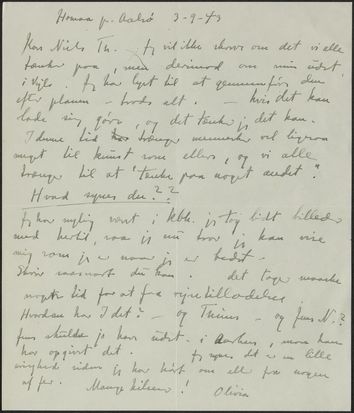 Homaa p. Aalsø 3-9-43
Kære Niels Th. - Jeg vil ikke skrive om det vi alle
tænker paa, men derimod om min udst.
i Vejle. Jeg har lyst til at gennemføre den
efter planen - trods alt. - hvis det kan
lade sig gøre, og det tænker jeg det kan.
I denne tid trænger mennesker vel ligesaa
meget til kunst som ellers, og vi alle
trænger til at "tænke paa noget andet".
Hvad synes du??
Jeg har nylig været i Kbh. jeg tog lidt billeder
med hertil, saa jeg nu tror jeg kan vise
mig som jeg er naar jeg er bedst.
Skriv saasnart du kan. det tager maaske
nogen tid for at faa rejsetilladelse
Hvordan har I det? - og - og fru N.?
skulde jo have udst. i Aarhus, men han
har opgivet det. Jeg synes det er en lille
evighed siden jeg har hørt om alle fra nogen
af jer. Mange hilsner! Olivia